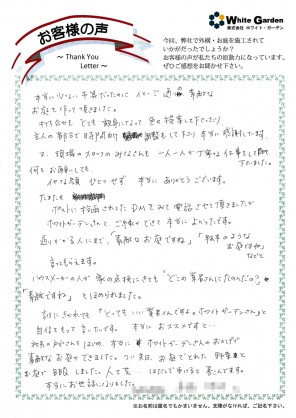 お客様の声
～ Thank You
Letter ～
White Garden
株式会社 ホワイト・ガーデン
今回、弊社で外構・お庭を施工されて
いかがだったでしょうか？
お客様の声が私たちの原動力になっています。
ぜひご感想をお聞かせ下さい。
本当に 予算だったのに イメージ通りの素敵な
お庭を作って頂きました。
打ち合せも とても親身になって 色々提案して下さったり
主人の都合で時間的 調整もして下さり 本当に感謝しています。
又、現場のスタッフのみなさんも 一人一人が丁寧な仕事をして下さいました。
何をお願いしても、
イヤな顔 ひとつせず 本当に ありがとうございます。
たまたま
ポストに投函された DMをみて 電話させて頂きましたが
ホワイトガーデンさんと ご縁ができて 本当によかったです。
通りがかる人にまで、「素敵なお庭ですね」「絵本のような
お庭ですね」
などと
言ってもらえます。
ハウスメーカーの人が 家の点検にきても "どこの業者さんにたのんだの?"
「素敵ですね」 とほめられました。
誰にきかれても 「とっても いい業者さんですよ。ホワイトガーデンさん」と
自信をもって言ったんです。 本当に おススメですと…
ホワイトガーデンさんのおかげで
素敵なお庭ができました。
本当にお世話になりました。
※お名前は匿名でもかまいません。支障がなければ、ご記名下さい。